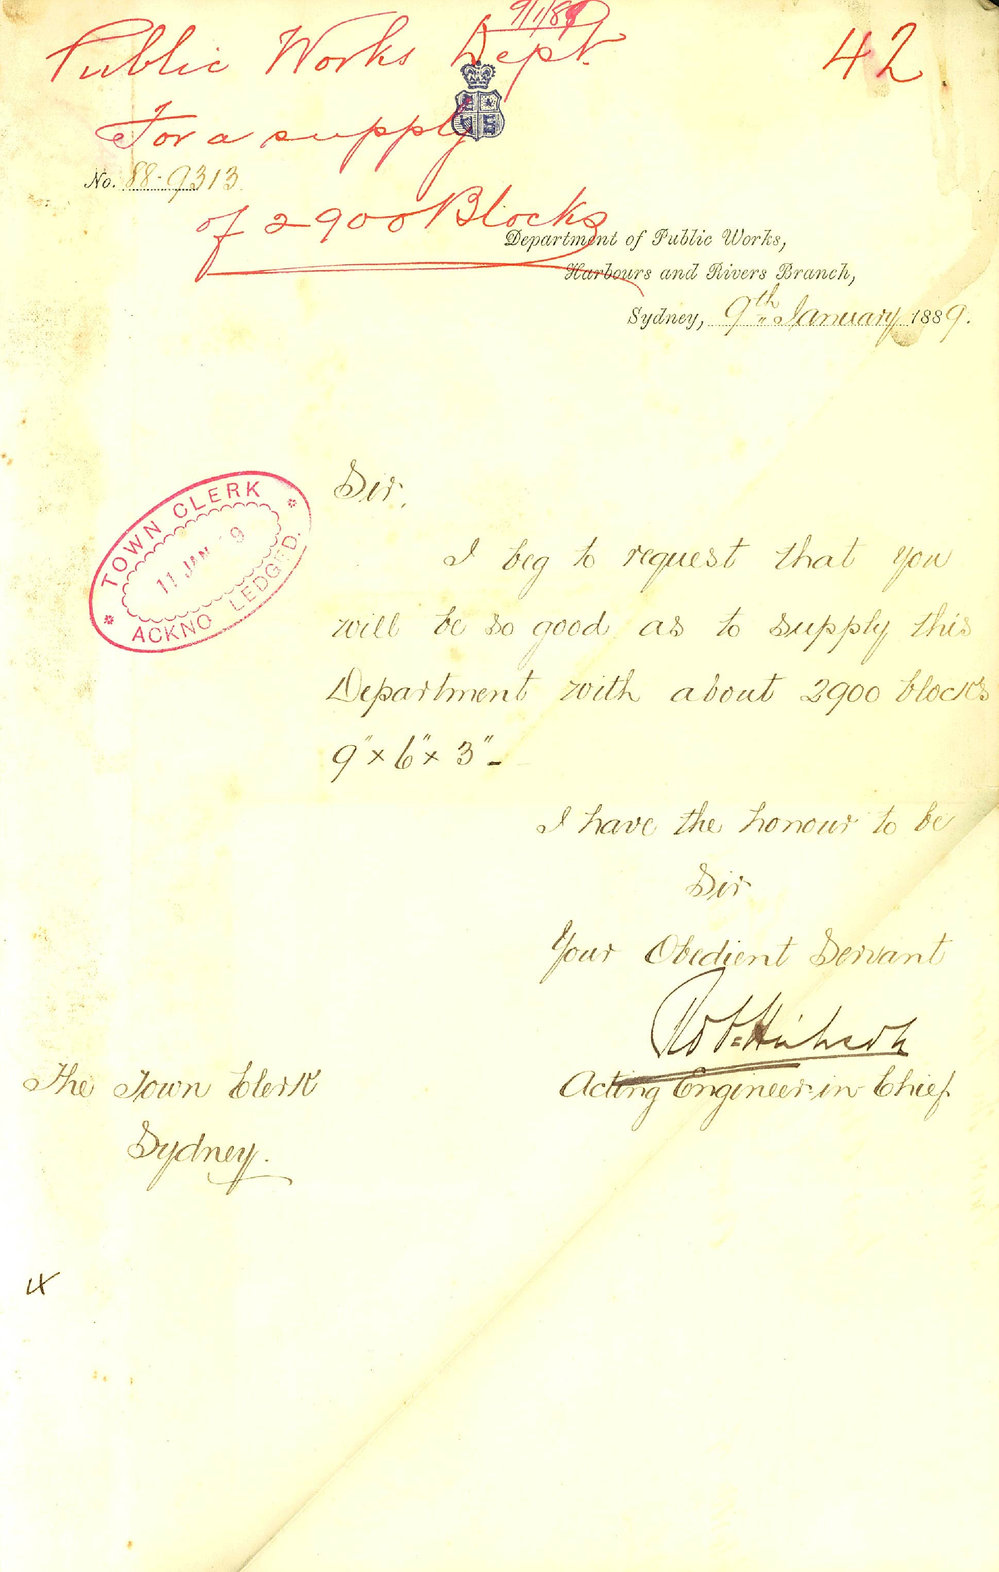 9/1/89
Public Works Dept. 42
For a supply
No. 88-9313
of 2900 Blocks
Department of Public Works,
Harbours and Rivers Branch,
Sydney, 9th January 1889.
TOWN CLERK
11 JAN 9
ACKNO LEDGED.
Sir,
I beg to request that you
will be so good as to supply this
Department with about 2900 blocks
9" x 6" x 3" -
I have the honour to be
Sir
Your Obedient Servant
Acting Engineer in Chief
The Town Clerk
Sydney.